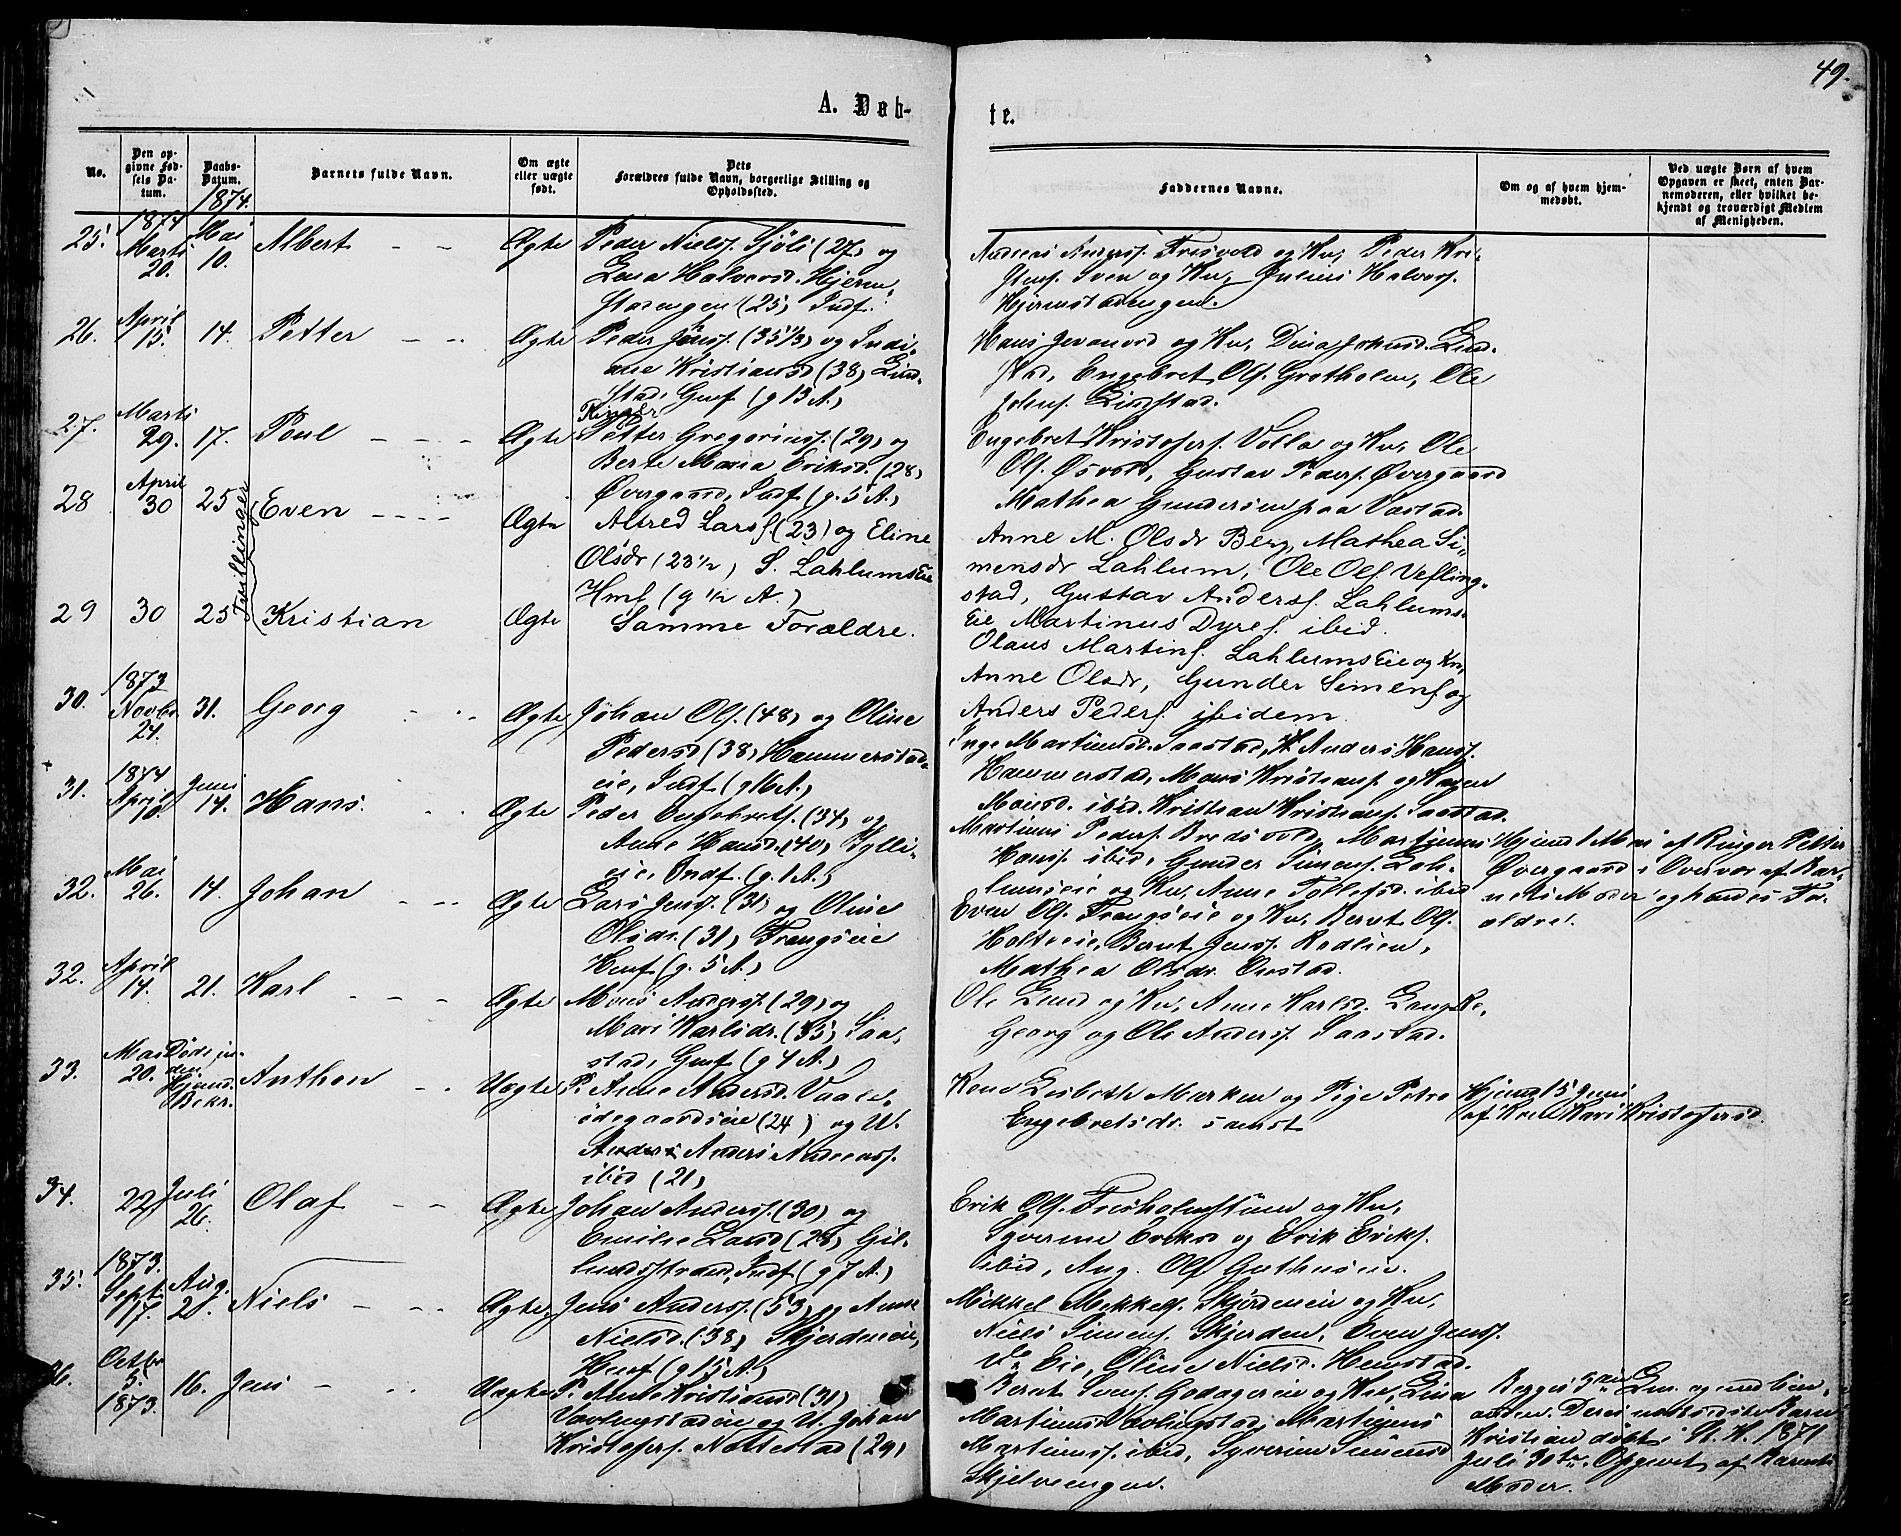 49.
A. Døb-
te.
No.
Den op-
givne Fød-
sels Da-
tum.
Daabs-
Datum.
Barnets fulde Navn.
Om ægte
eller uægte
født.
Dets
Forældres fulde Navn, borgerlige Stilling og
Opholdssted.
Faddernes Navne.
Om og af hvem hjem-
medøbt.
Ved uægte Børn af hvem
Opgaven er skeet, enten Bar-
nemoderen, eller hvilket be-
kjendt og troværdigt Medlem
af Menigheden.
1874.
25. 1874 Marts 20. Mai 10. Albert Ægte Peder Nielsf. Sjöli (27) og
Lina Halvorsd. Hjerm-
stadengen (25) Indf.
Andreas Frisvold og Kv, Peder Kri-
stensf. Iven og Kv, Julius Halvorsf.
Hjermstadengen.
26. April 15. 14. Petter Ægte Peder Jensf. (35 1/3) og Indi-
ane Kristiansd (38) Lind-
stad, Gmf (g 13 A.)
Hans Jevanord og Kv, Dina Johnsd. Lind-
stad, Engebret Olsf. Grotholm, Ole
Johnsf. Lindstad.
27. Marts 29. 17. Poul Ægte Ringer
Petter Gregoriusf. (29) og
Berte Maria Eriksd. (28)
Øvergaard, Indf (g. 5 A.)
Engebret Kristofersf. Volla og Kv, Ole
Olsf. Øsvold, Gustav Pedersf. Øvergaard
Mathea Gundersen paa Væstad.
28 April 30 25 Tvillinger Even Ægte Alfred Larsf (23) og Eline
Olsdr (23 1/2) S. LahlumsEie
Hmf (g 1/2 A.)
Anne M. Olsdr Berg, Mathea Si-
mensdr Lahlum, Ole Olsf Vefling-
stad, Gustav Andersf. Lahlums-
Eie Martinus Dyresf. ibid.
29 30 25 Kristian Ægte Samme Forældre.
Olaus Martinsf. LahlumsEie og Kv,
Anne Olsdr, Gunder Simensf og
Anders Pedersf. ibidem
30. 1873 Novbr. 24. 31. Georg Ægte Johan Olsf. (48) og Oline
Pedersd (38) Hammerstad-
eie, Indf (g 16 A.)
Inge Martinsd. Saastad, Anders Hansf.
Hammerstad, Mons Kristiansf. og Karen
Monsd. ibid. Kristian Kristiansf. Saastad.
31. 1874 April 10. Juni 14. Hans Ægte Peder Engebretsf. (34) og
Anne Hansd. (40) Hylli-
eie, Indf. (g. 1 A.)
Martinus Pedersf. Bredsvold, Martinus
Hansf. ibid, Gunder Simensf. Lah-
lumseie og Kv, Anne Tollefsd. ibid
Hjemd 1 Mai af Ringer Petter
Øvergaard i Overvær af Bar-
nets Moder og hendes For-
ældre.
32. Mai 26. 14. Johan Ægte Lars Jensf. (31) og Oline
Olsdr. (31) Trangseie
Hmf (g. 5 A.)
Even Olsf. Trangseie og Kv, Bernt Olsf.
Holteeie, Bernt Jensf. Rodlien,
Mathea Olsdr. Onstad.
32. April 14. 21. Karl Ægte Mons Andersf. (29) og
Mari Karlsdr. (35) Saa-
stad, Gmf (g 4 A.)
Ole Lund og Kv, Anne Karlsd.
Georg og Ole Andersf. Saastad.
33. Mai 20. Døde in-
den
Hjemd.
Bekr. Anthon Uægte P. Anne Andersd. Vaale-
ødegaardseie (24) og U.
Anders Andersf.
ibid (21)
Kone Lisbeth Marken og Pige Petra
Engebretsdr. samst
Hjemd 15 Juni
af Kone Kari Kristofersd.
34. 22 Juli 26. Olaf Ægte Johan Andersf. (30) og
Emilie Larsd (28) Gil-
lundstrand, Indf (g 7 A.)
Erik Olsf. Frisholmstuen og Kv,
Syverine Eriksd og Erik Eriksf.
ibid, Aug. Olsf Guthuseie.
35. 1873. Sept. 17. Aug. 2. Niels Ægte Jens Andersf. (53) og Anne
Nielsd. (38) Skjerdeneie,
Hmf (g 15 A.)
Mikkel Mikkelsf. Skjerdeneie og Kv,
Niels Simensf. Skjerden, Even Jensf.
Do Eie, Oline Nielsd. Hemstad.
36. Octbr 5. 1873. 16. Jens Uægte P. Anne Kristiansd (31)
Vævlingstadeie og U. Johan
Kristofersf. Nottestad (29)
Bernt Svensf. Godagereie og Kv, Lina
Martinusd Vævlingstad, Martinus
Martinusf. ibid, Syverine Simensd
Skjelvengen.
Begges 5te og
Deres næstsidste Barn
Kristian døbt i St. K. 1871
Juli 30te. Opgivet af Barnets
Moder.